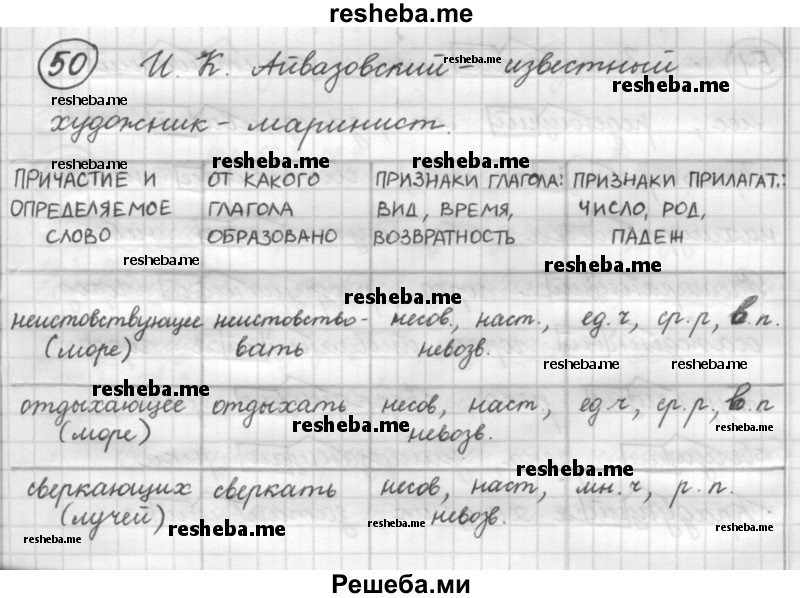 resheba.me
50 И. К. Айвазовский - известный
resheba.me
resheba.me
resheba.me
художник - маринист.
resheba.me
resheba.me
resheba.me
ПРИЧАСТИЕ И ОПРЕДЕЛЯЕМОЕ СЛОВО
ОТ КАКОГО ГЛАГОЛА ОБРАЗОВАНО
ПРИЗНАКИ ГЛАГОЛА: ВИД, ВРЕМЯ, ВОЗВРАТНОСТЬ
ПРИЗНАКИ ПРИЛАГАТ.: ЧИСЛО, РОД, ПАДЕЖ
resheba.me
resheba.me
resheba.me
неистовствующее неистовство- несов., наст., ед.ч, ср.р, в.п.
(море) вать невозв.
resheba.me
resheba.me
resheba.me
отдыхающее отдыхать несов, наст., ед.ч, ср.р, в.п
(море) невозв.
resheba.me
resheba.me
сверкающих сверкать несов, наст, мн.ч, р.п.
(лучей) невозв.
resheba.me
resheba.me
resheba.me
resheba.me
Решеба.ми